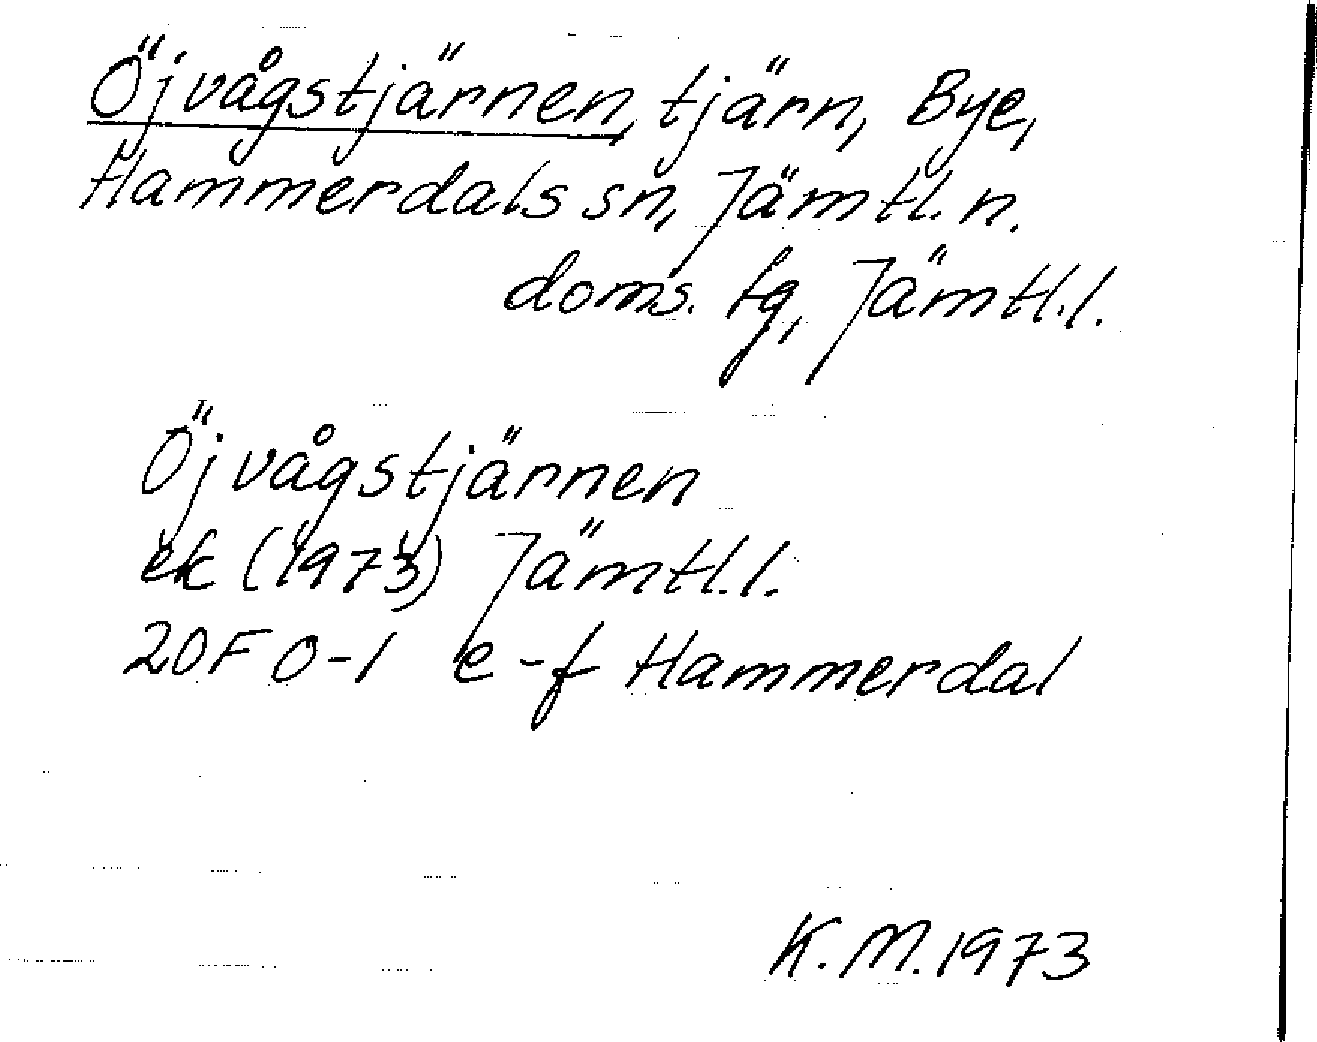 Öjvågstjärnen, tjärn, Bye,
Hammerdals sn, Jämtl. n.
doms. tg, Jämtl. l.
Öjvågstjärnen
ek (1973) Jämtl. l.
20F 0-1 e-f Hammerdal
K. M. 1973